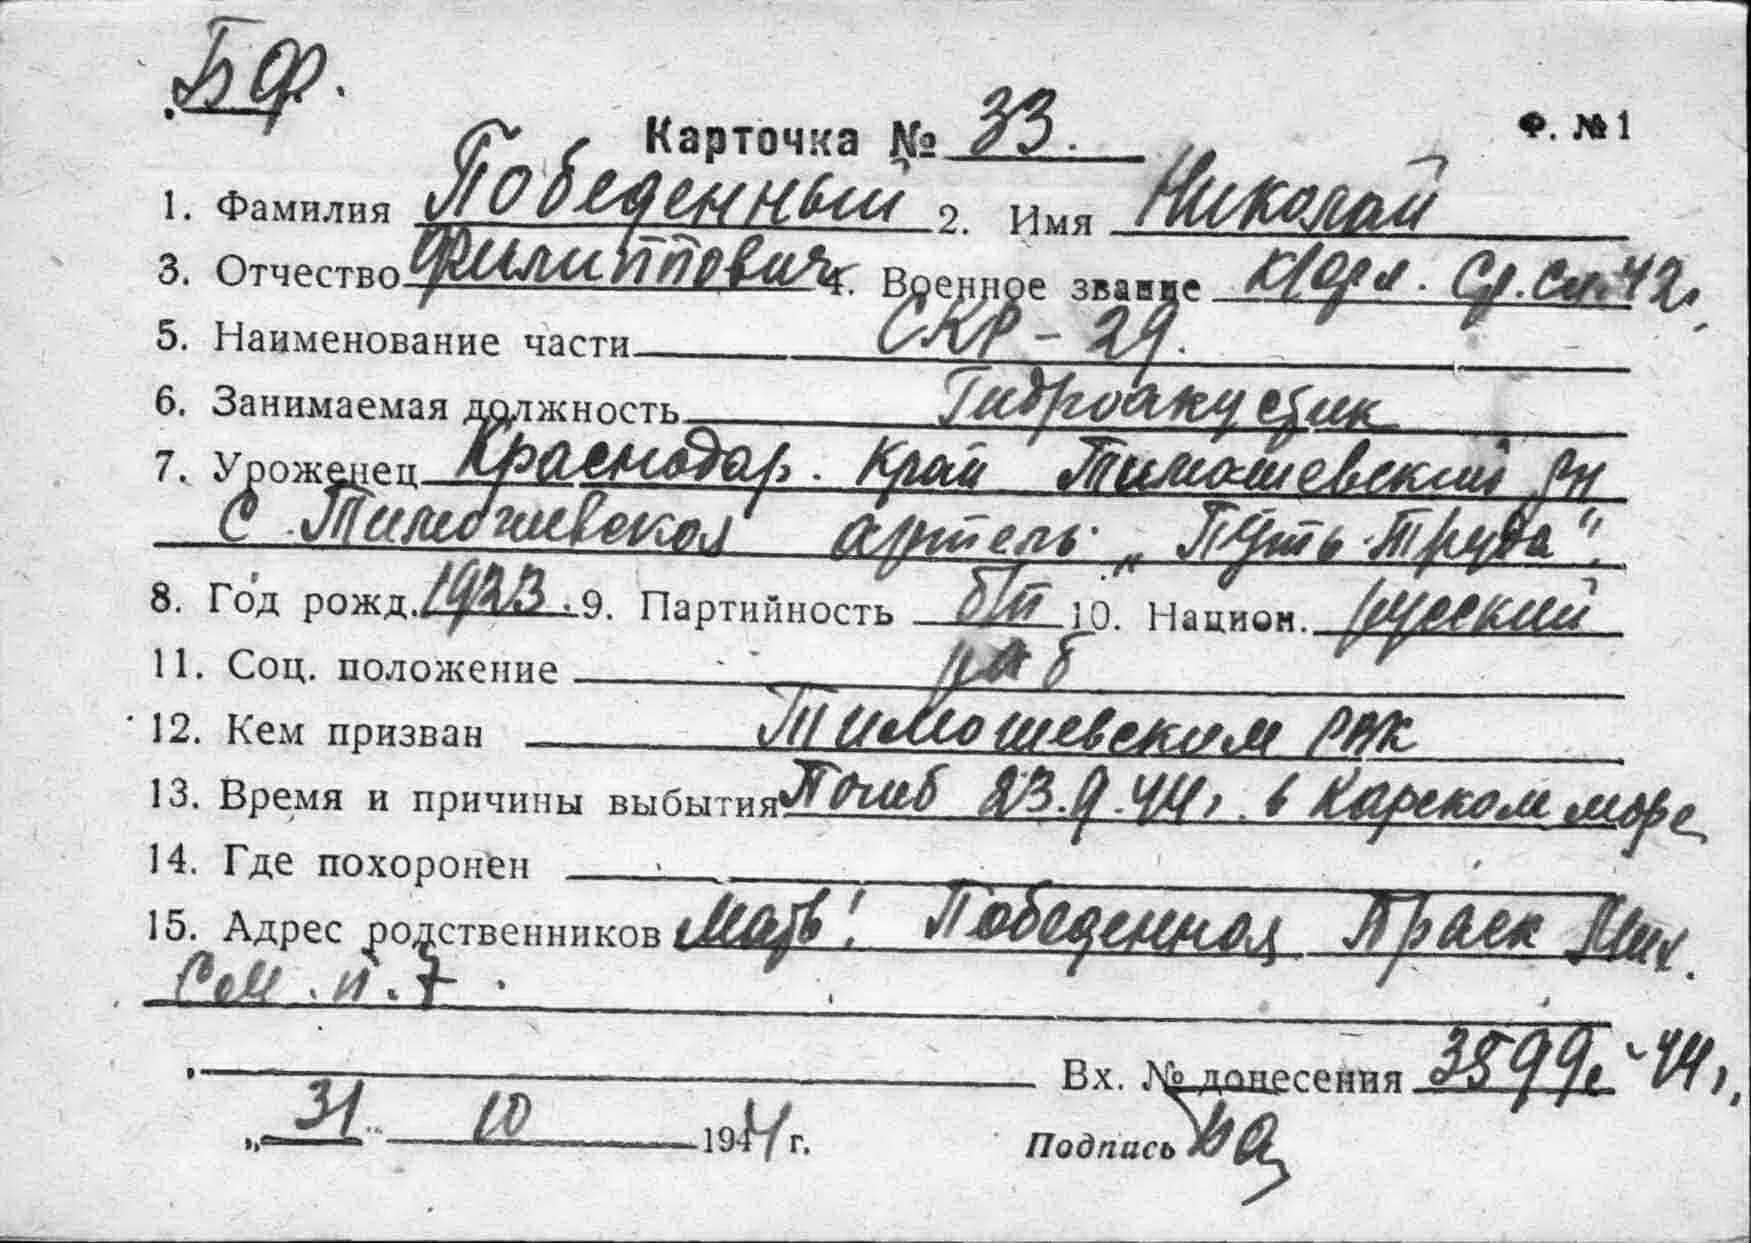 БФ.
Карточка № 33. Ф. №1
1. Фамилия Победенный 2. Имя Николай
3. Отчество Филиппович 4. Военное звание к/орл. Ср. сл. 42г.
5. Наименование части СКР-29.
6. Занимаемая должность Гидроакустик
7. Уроженец Краснодар. край Тимошевский рн
с. Тимошевская артель „Путь Труда".
8. Год рожд. 1923. 9. Партийность б/п 10. Национ. русский
11. Соц. положение раб
12. Кем призван Тимошевским РВК
13. Время и причины выбытия Погиб 23.9.44г. в Карском море
14. Где похоронен
15. Адрес родственников Мать: Победенная Праск Мих.
См. п. 7.
Вх. № донесения 3599с-44г.
„31" 10 1944 г. Подпись